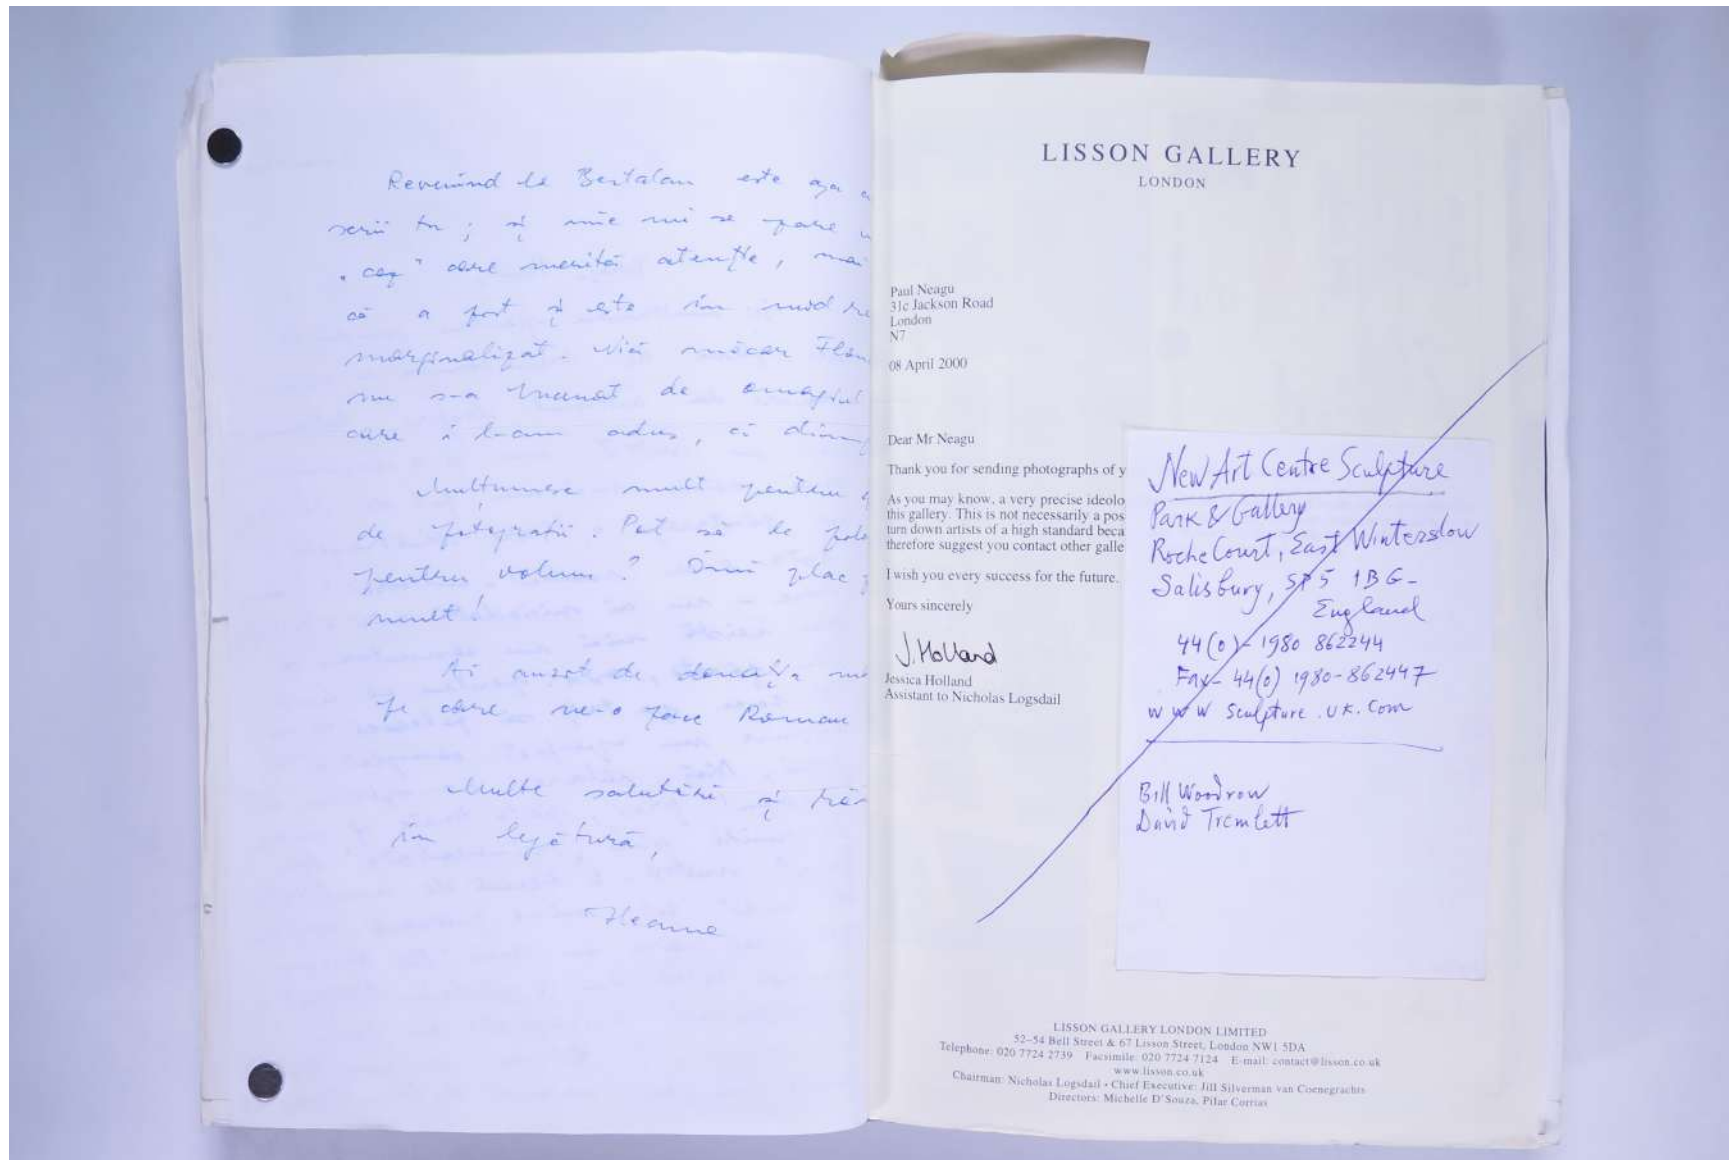 Revenind la Bertalan este aşa
scrii tu; şi mie mi se pare
"caz" care merită atenţie, mai
că a fost şi este în mod
marginalizat. Nici măcar
nu s-a de omagiul
care i l-am adus, ci
Mulţumesc mult pentru
de fotografii. Pot să le
pentru volum? Îmi plac
mult!
Ai auzit de donaţia
pe care ne-o face Roman
Multe salutări şi
în legătură,
Ileana
LISSON GALLERY
LONDON
Paul Neagu
31c Jackson Road
London
N7
08 April 2000
Dear Mr Neagu
Thank you for sending photographs of y
As you may know, a very precise ideolo
this gallery. This is not necessarily a pos
turn down artists of a high standard beca
therefore suggest you contact other galle
I wish you every success for the future.
Yours sincerely
J. Holland
Jessica Holland
Assistant to Nicholas Logsdail
New Art Centre Sculpture
Park & Gallery
Roche Court, East Winterslow
Salisbury, SP5 1BG-
England
44(0)-1980 862244
Fax- 44(0) 1980-862447
www sculpture.uk.com
Bill Woodrow
David Tremlett
LISSON GALLERY LONDON LIMITED
52–54 Bell Street & 67 Lisson Street, London NW1 5DA
Telephone: 020 7724 2739 Facsimile: 020 7724 7124 E-mail: contact@lisson.co.uk
www.lisson.co.uk
Chairman: Nicholas Logsdail • Chief Executive: Jill Silverman van Coenegrachts
Directors: Michelle D'Souza, Pilar Corrias